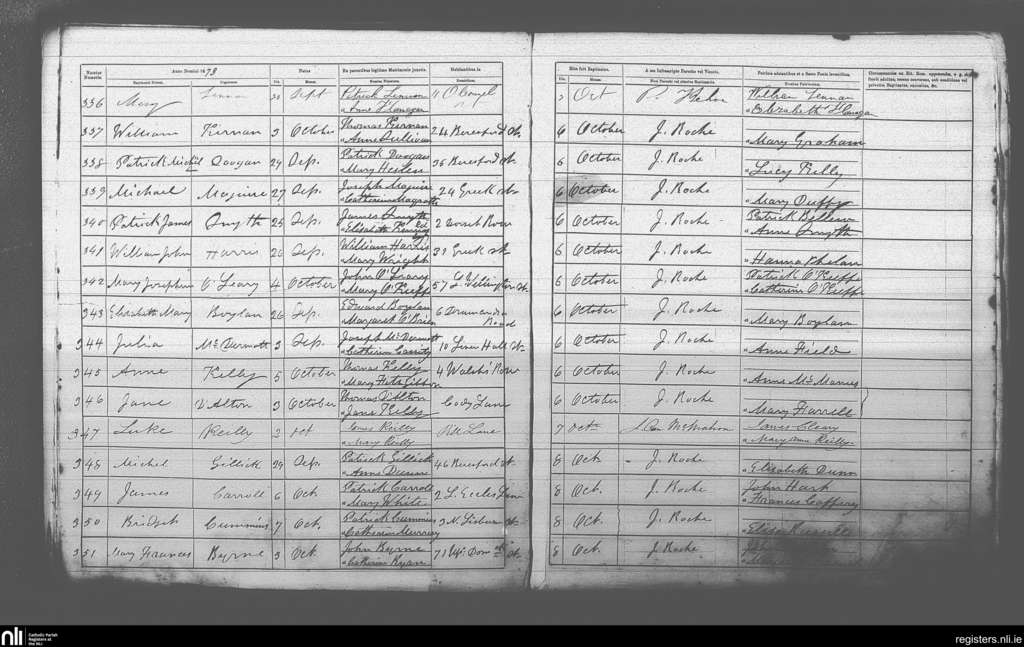 Numerus
Numerus
Anno Domini 1878
Natus
Ex parentibus legitimo Matrimonio junctis.
Habitantibus in
Baptizati Nomen.
Cognomen.
Die.
Mense.
Nomina Parentum.
Domicilium.
Rite fuit Baptizatus.
A me infrascripto Parocho vel Vicario.
Patrinis adstantibus et e Sacro Fonte levantibus.
Die.
Mense.
Nomen Parochi vel alterius Sacerdotis.
Nomina Patrinorum.
336 Mary Lennan Sept Patrick Lennon
" Anne Flanagan
2 Oct P. Phelan William Lennan
" Elizabeth Flanagan
337 William Kirnan 3 October Thomas Kirnan 24 Beresford St.
" Anne Sullivan
6 October J. Roche
" Mary Graham
338 Patrick Michl Doogan 29 Sep. Patrick Doogan 36 Beresford St.
" Mary
6 October J. Roche
" Lucy Kelly
339 Michael Maguire 27 Sep. Joseph Maguire 24 Greek St
" Catherine
6 October J. Roche
" Mary Duffy
340 Patrick James Smyth 25 Sep. James Smyth 2
" Elizabeth
6 October J. Roche Patrick
" Anne Smyth
341 William John Harris 26 Sep. William Harris Greek St.
" Mary Wright
6 October J. Roche
" Hanna Phelan
342 Mary Josephine O'Leary 4 October John O'Leary 57 L. Wellington St
" Mary O'Kieffe
6 October J. Roche Patrick O'Kieffe
" Catherine O'Kieffe
343 Elizabeth Mary Boylan 26 Sep. Edward Boylan 6 Drumcondra
Margaret O'Brien Road
6 October J. Roche
" Mary Boylan
344 Julia McDermott 3 Sep. Joseph McDermott 10 Linen Hall St.
" Catherine Garrity
6 October J. Roche
" Anne Field
345 Anne Kelly 5 October Thomas Kelly 4 Walsh's Row
" Mary Fitz Gibbon
6 October J. Roche
" Anne McManus
346 Jane D'Alton 3 October Thomas D'Alton Lane
" Jane Kelly
6 October J. Roche
" Mary Farrell
347 Luke Reilly 2 Oct James Reilly Lane
" Mary Reilly
7 Oct. McMahon James Cleary
" Mary Anne Reilly
348 Michel Gillick 29 Sep. Patrick Gillick 46 Beresford St.
" Anne
8 Oct. J. Roche
" Elizabeth Dunn
349 James Carroll 6 Oct. Patrick Carroll 2 L. Eccles Lane
" Mary White
8 Oct. J. Roche John Hart
" Frances Caffrey
350 Bridget Cummins 7 Oct. Patrick Cummins 3 N. Lisburn St.
Catherine Murray
8 Oct. J. Roche
351 Mary Frances Byrne 3 Oct. John Byrne 71 Up. Dominick St.
" Catherine Ryan
8 Oct. J. Roche
nli
Catholic Parish
Registers at
the NLI
registers.nli.ie